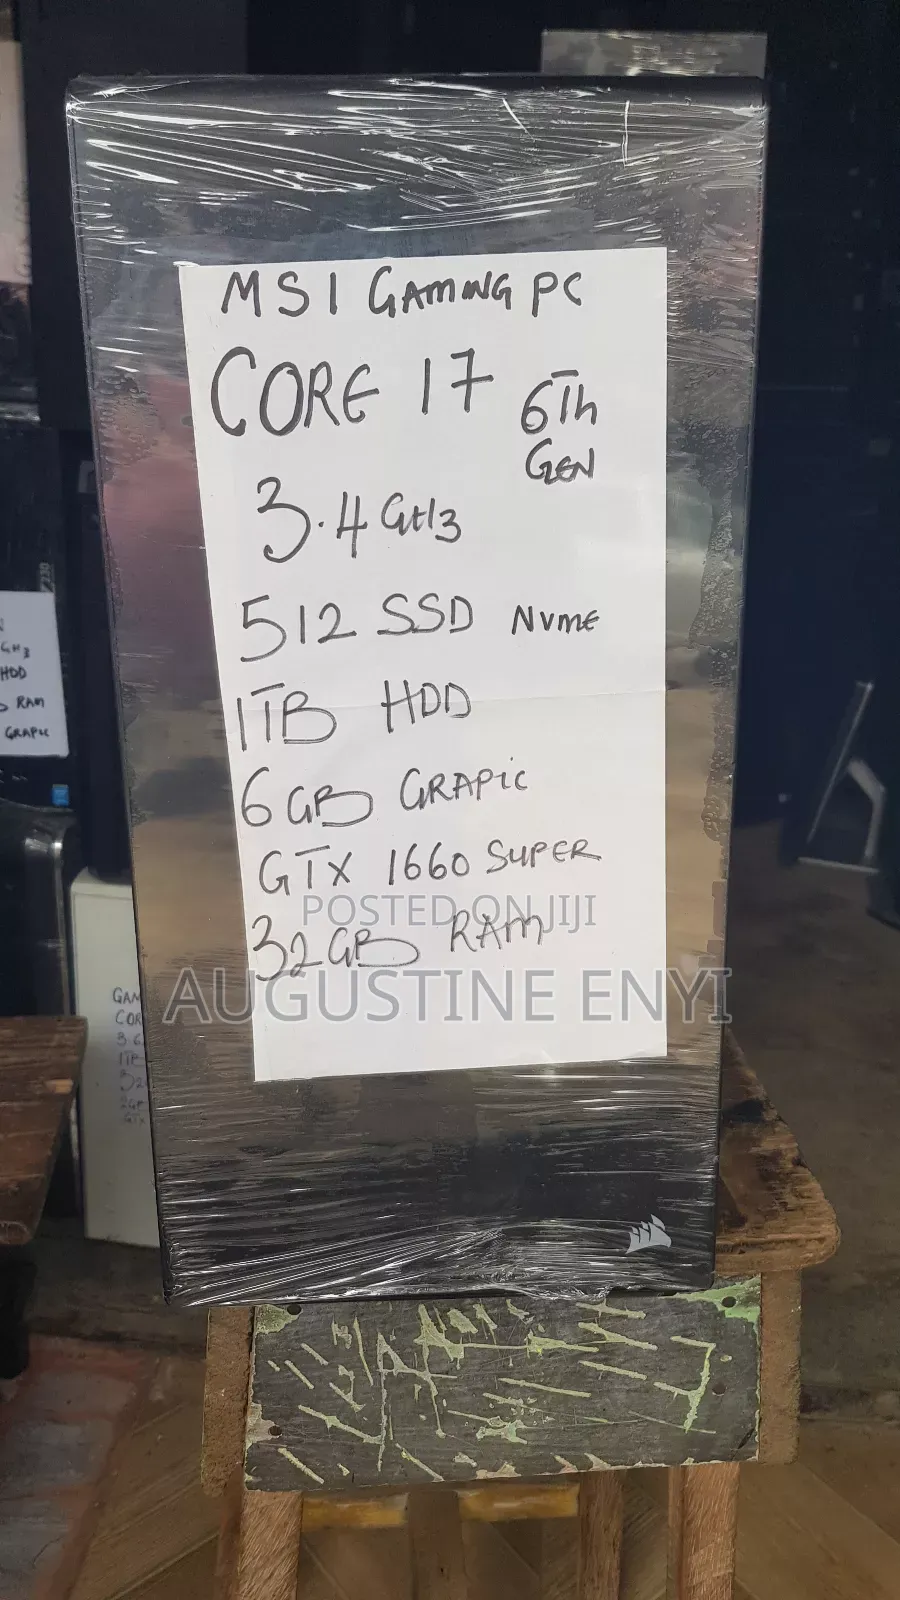 MSI GAMING PC
CORE I7 6Th
GEN
3.4 GH3
512 SSD NVME
1TB HDD
6GB GRAPIC
GTX 1660 SUPER
POSTED ON JIJI
32GB RAM
AUGUSTINE ENYI
GH3
HDD
RAM
GRAPIC
GAM
COR
3.6
1TB
32
2GB
GTX